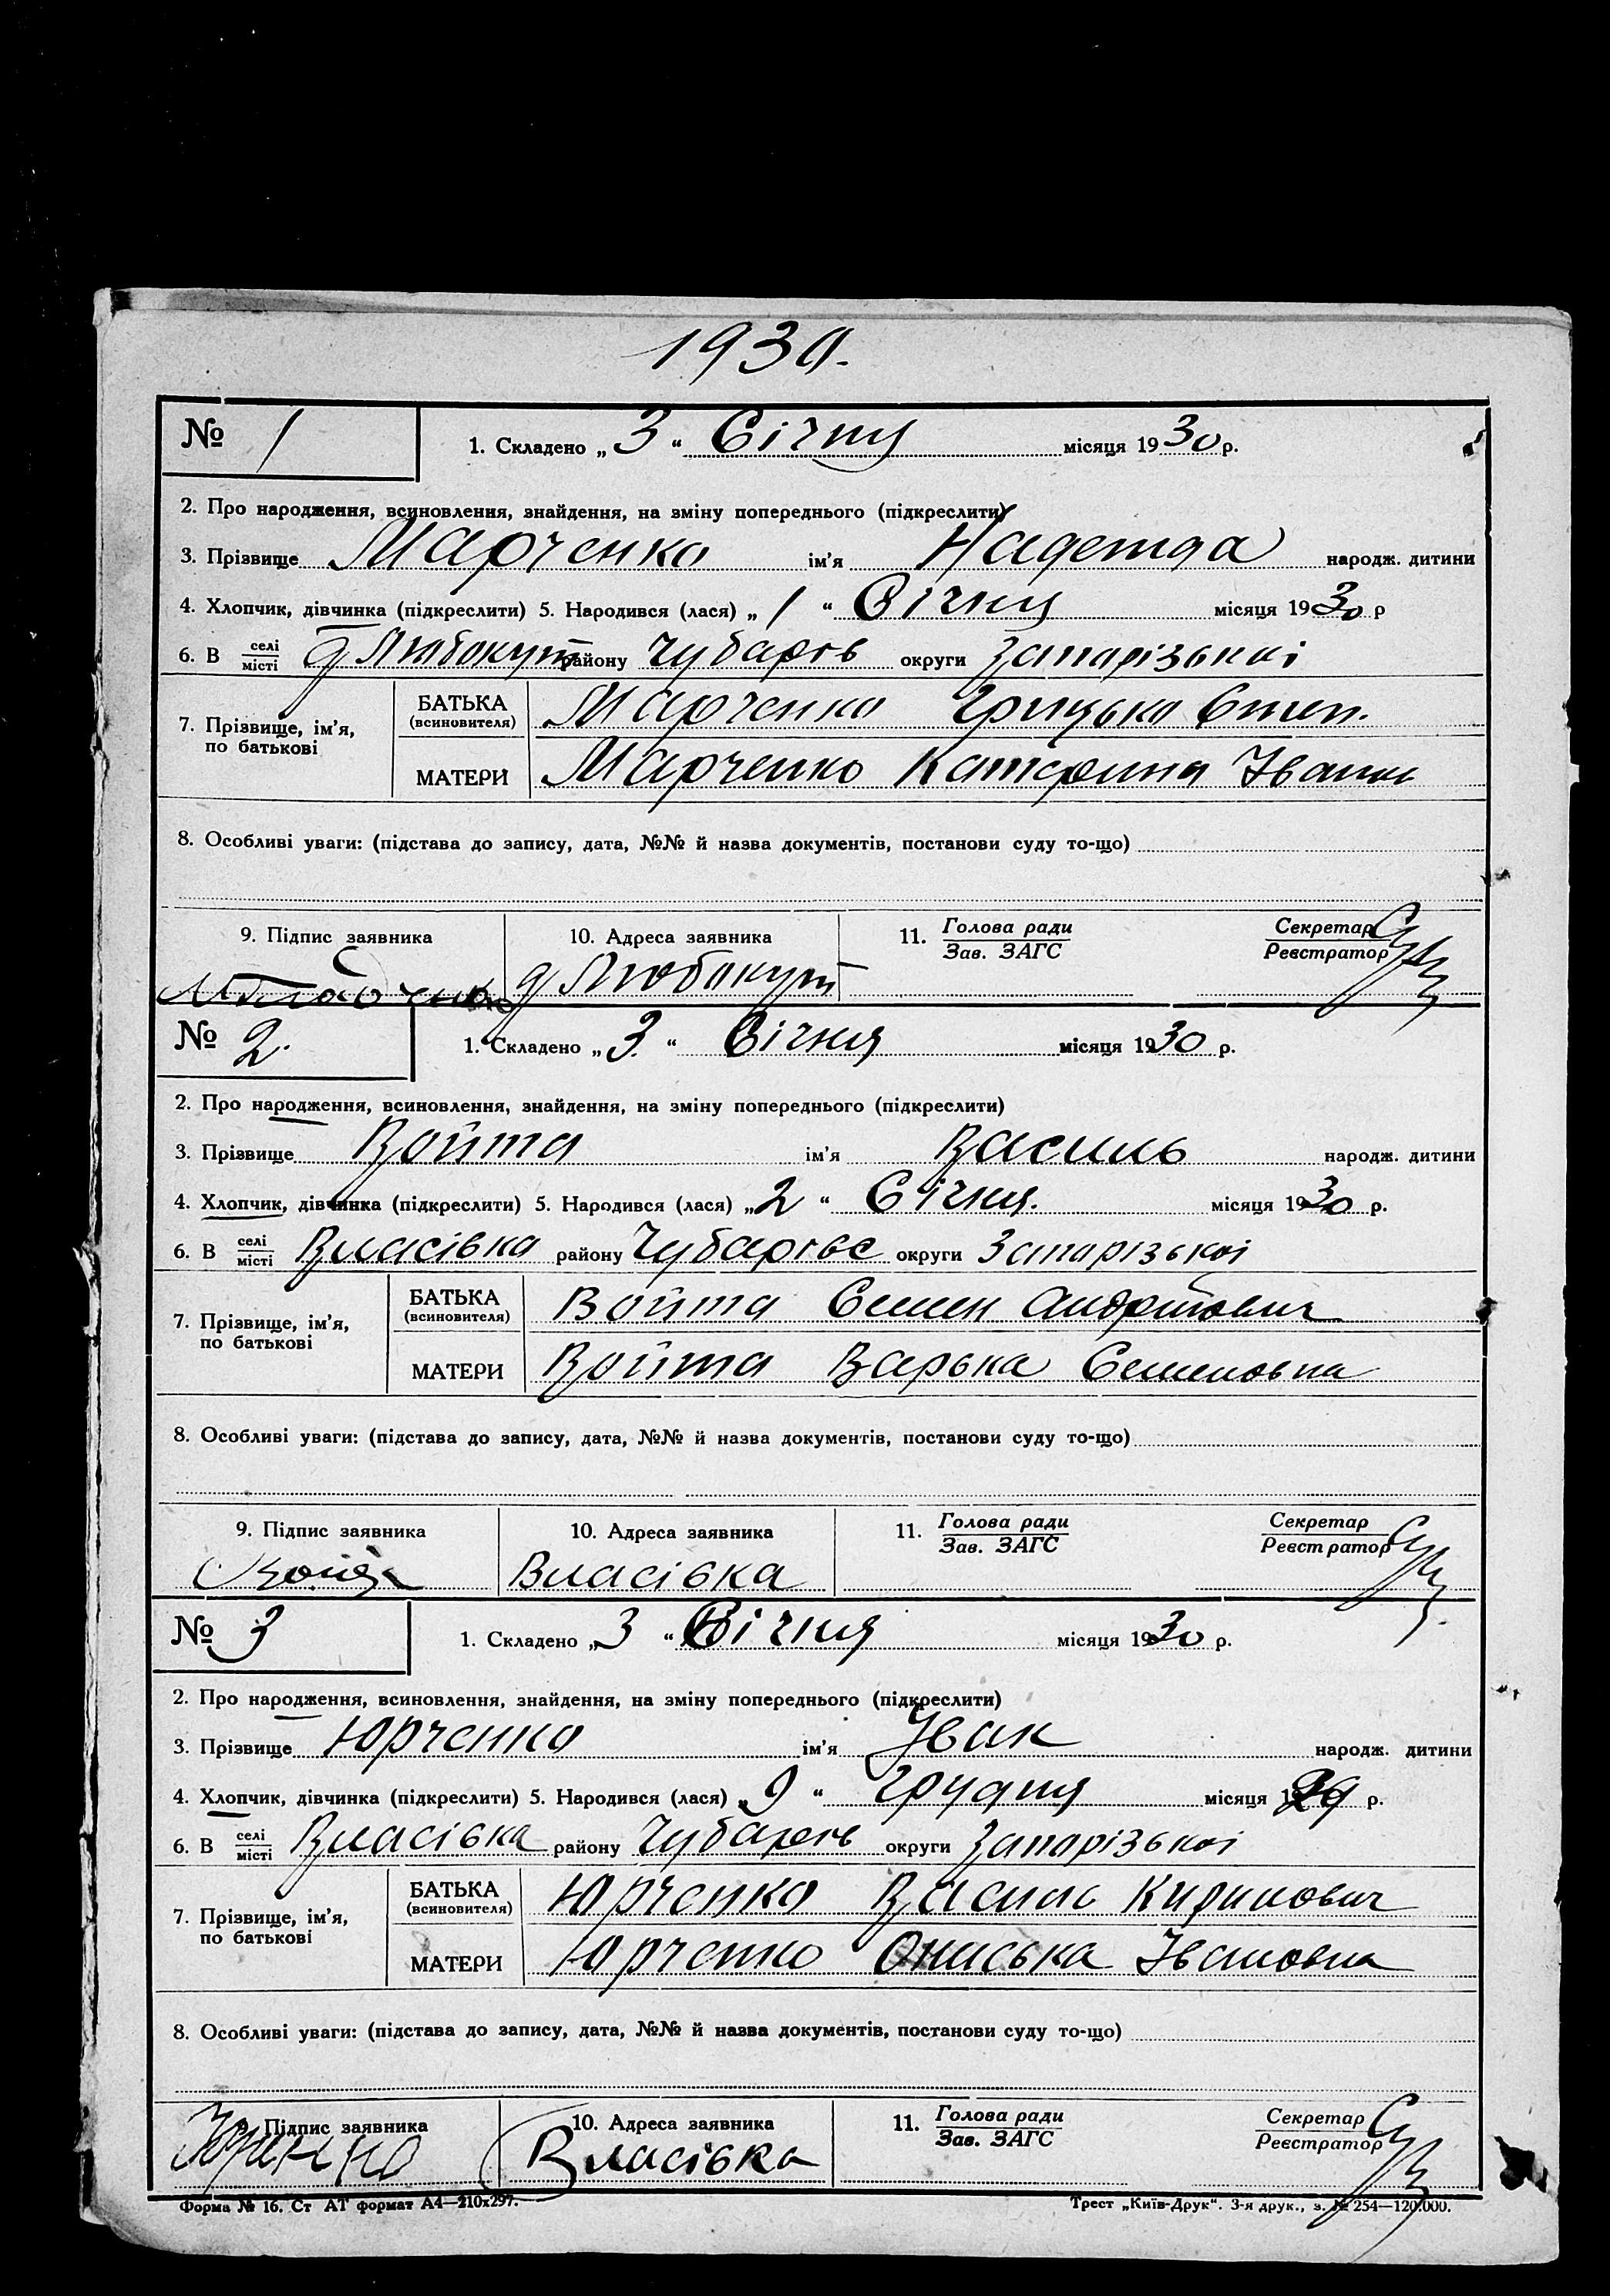 1930.
№ 1 1. Складено „3“ Січня місяця 1930 р.
2. Про народження, всиновлення, знайдення, на зміну попереднього (підкреслити)
3. Прізвище Марченко ім'я Надежда народж. дитини
4. Хлопчик, дівчинка (підкреслити) 5. Народився (лася) „1“ Січня місяця 1930 р
6. В селі/місті д Любокут району Чубарів округи Запорізькоі
7. Прізвище, ім'я, по батькові
БАТЬКА (всиновителя) Марченко Грицько Степ.
МАТЕРИ Марченко Катерина Іван
8. Особливі уваги: (підстава до запису, дата, №№ й назва документів, постанови суду то-що)
9. Підпис заявника 10. Адреса заявника 11. Голова ради/Зав. ЗАГС Секретар/Реєстратор
д Любокут
№ 2. 1. Складено „3.“ Січня місяця 1930 р.
2. Про народження, всиновлення, знайдення, на зміну попереднього (підкреслити)
3. Прізвище Войта ім'я Василь народж. дитини
4. Хлопчик, дівчинка (підкреслити) 5. Народився (лася) „2“ Січня. місяця 1930 р.
6. В селі/місті Власівка району Чубарівс округи Запорізькоі
7. Прізвище, ім'я, по батькові
БАТЬКА (всиновителя) Войта Семен Андрійович
МАТЕРИ Войта Варька Семеновна
8. Особливі уваги: (підстава до запису, дата, №№ й назва документів, постанови суду то-що)
9. Підпис заявника 10. Адреса заявника 11. Голова ради/Зав. ЗАГС Секретар/Реєстратор
Власівка
№ 3 1. Складено „3“ Січня місяця 1930 р.
2. Про народження, всиновлення, знайдення, на зміну попереднього (підкреслити)
3. Прізвище Юрченко ім'я Іван народж. дитини
4. Хлопчик, дівчинка (підкреслити) 5. Народився (лася) „9“ Грудня місяця 1929 р.
6. В селі/місті Власівка району Чубарів округи Запорізькоі
7. Прізвище, ім'я, по батькові
БАТЬКА (всиновителя) Юрченко Василь Кирилович
МАТЕРИ Юрченко Ониська Івановна
8. Особливі уваги: (підстава до запису, дата, №№ й назва документів, постанови суду то-що)
9. Підпис заявника 10. Адреса заявника 11. Голова ради/Зав. ЗАГС Секретар/Реєстратор
Власівка
Форма № 16. Ст АТ формат А4—210x297. Трест „Київ-Друк“. 3-я друк., з. № 254—120.000.